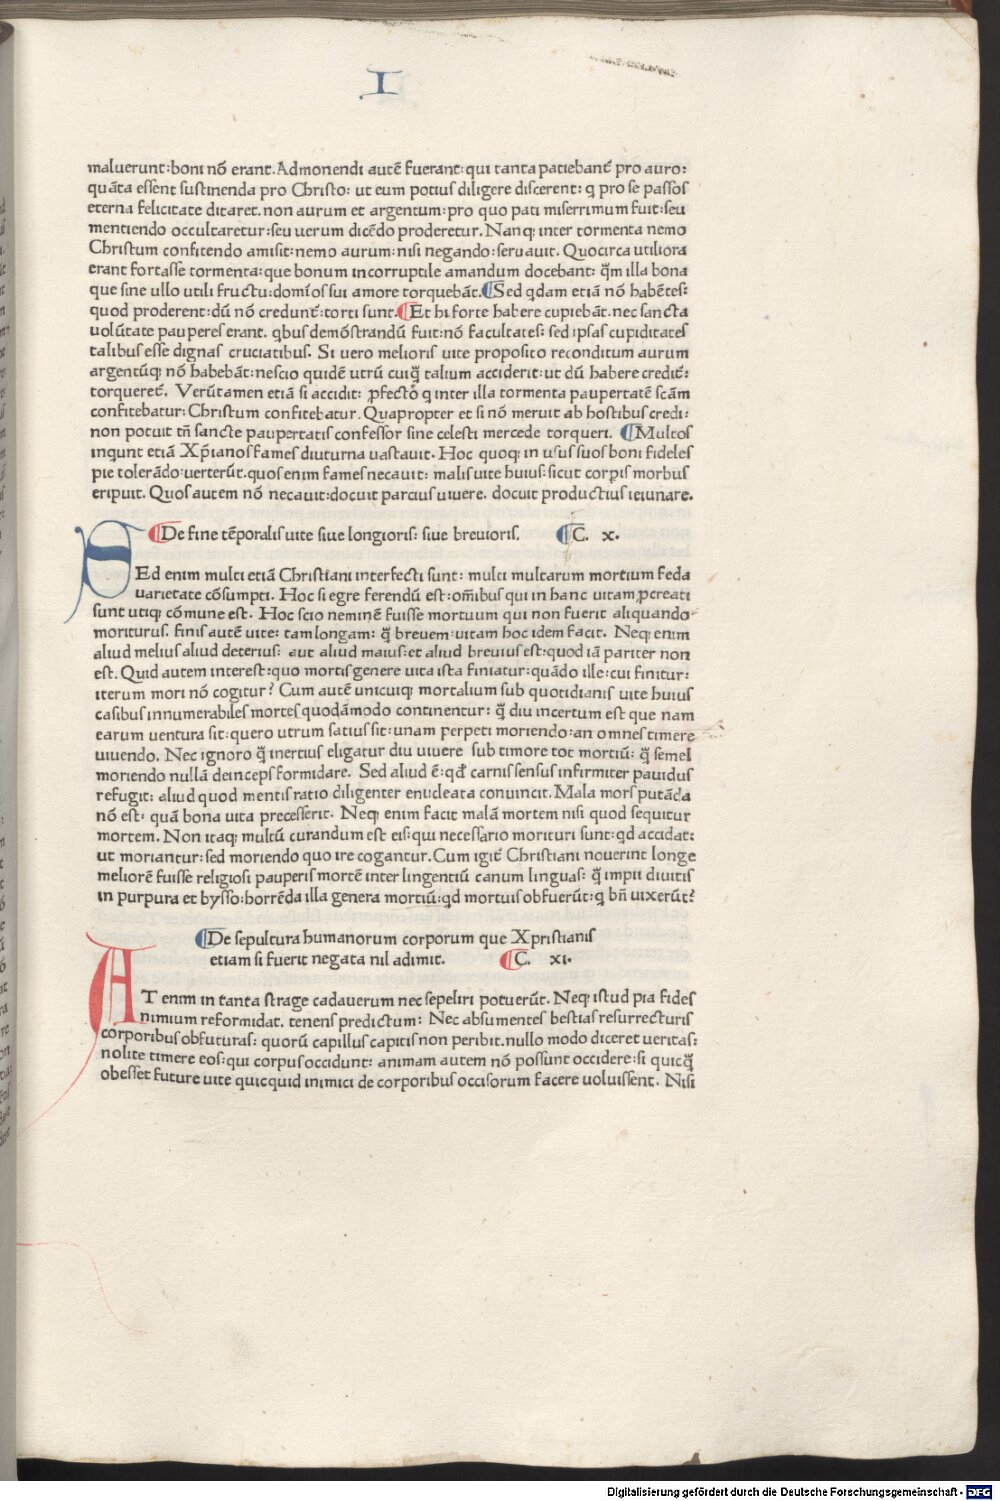 I
maluerunt: boni nō erant. Admonendi autē fuerant: qui tanta patiebant̄ pro auro:
quāta essent sustinenda pro Christo: ut eum potius diligere discerent: q̄ pro se passos
eterna felicitate ditaret. non aurum et argentum: pro quo pati miserrimum fuit: seu
mentiendo occultaretur: seu uerum dicēdo proderetur. Nanq; inter tormenta nemo
Christum confitendo amisit: nemo aurum: nisi negando: seruauit. Quocirca utiliora
erant fortasse tormenta: que bonum incorruptile amandum docebant: q̄m illa bona
que sine ullo utili fructu: domīos sui amore torquebāt. ¶Sed qdam etiā nō habētes:
quod proderent: dū nō credunt̄: torti sunt. ¶Et hi forte habere cupiebāt. nec sancta
uolūtate pauperes erant. qbus demōstrandū fuit: nō facultates: sed ipsas cupiditates
talibus esse dignas cruciatibus. Si uero melioris uite proposito reconditum aurum
argentūq; nō habebāt: nescio quidē utrū cuiq̄ talium acciderit: ut dū habere credit̄:
torqueret̄. Verūtamen etiā si accidit: ꝓfecto q inter illa tormenta paupertatē scām
confitebatur: Christum confitebatur. Quapropter et si nō meruit ab hostibus credi:
non potuit tn̄ sancte paupertatis confessor sine celesti mercede torqueri. ¶Multos
inqunt etiā Xp̄ianos fames diuturna uastauit. Hoc quoq; in usus suos boni fideles
pie tolerādo uerterūt. quos enim fames necauit: malis uite huius: sicut corpis morbus
eripuit. Quos autem nō necauit: docuit parcius uiuere. docuit productius ieiunare.
¶De fine tēporalis uite siue longioris: siue breuioris. ¶C. x.
SEd enim multi etiā Christiani interfecti sunt: multi multarum mortium feda
uarietate cōsumpti. Hoc si egre ferendū est: om̄ibus qui in hanc uitam ꝓcreati
sunt utiq; cōmune est. Hoc scio neminē fuisse mortuum qui non fuerit aliquando
moriturus. finis autē uite: tam longam: q̄ breuem uitam hoc idem facit. Neq; enim
aliud melius aliud deterius: aut aliud maius: et aliud breuius est: quod iā pariter non
est. Quid autem interest: quo mortis genere uita ista finiatur: quādo ille: cui finitur:
iterum mori nō cogitur? Cum autē unicuiq; mortalium sub quotidianis uite huius
casibus innumerabiles mortes quodāmodo continentur: q̄ diu incertum est que nam
earum uentura sit: quero utrum satius sit: unam perpeti moriendo: an omnes timere
uiuendo. Nec ignoro q̄ inertius eligatur diu uiuere sub timore tot mortiū: q̄ semel
moriendo nullā deinceps formidare. Sed aliud ē: qd̄ carnis sensus infirmiter pauidus
refugit: aliud quod mentis ratio diligenter enucleata conuincit. Mala mors putāda
nō est: quā bona uita precesserit. Neq; enim facit malā mortem nisi quod sequitur
mortem. Non itaq; multū curandum est eis: qui necessario morituri sunt: qd accidat:
ut moriantur: sed moriendo quo ire cogantur. Cum igit̄ Christiani nouerint longe
meliorē fuisse religiosi pauperis mortē inter lingentiū canum linguas: q̄ impii diuitis
in purpura et bysso: horrēda illa genera mortiū: qd mortuis obfuerūt: q bn̄ uixerūt?
¶De sepultura humanorum corporum que Xpristianis
etiam si fuerit negata nil adimit. ¶C. xi.
AT enim in tanta strage cadauerum nec sepeliri potuerūt. Neq; istud pia fides
nimium reformidat. tenens predictum: Nec absumentes bestias resurrecturis
corporibus obfuturas: quorū capillus capitis non peribit. nullo modo diceret ueritas:
nolite timere eos: qui corpus occidunt: animam autem nō possunt occidere: si quicq̄
obesset future uite quicquid inimici de corporibus occisorum facere uoluissent. Nisi
Digitalisierung gefördert durch die Deutsche Forschungsgemeinschaft - DFG